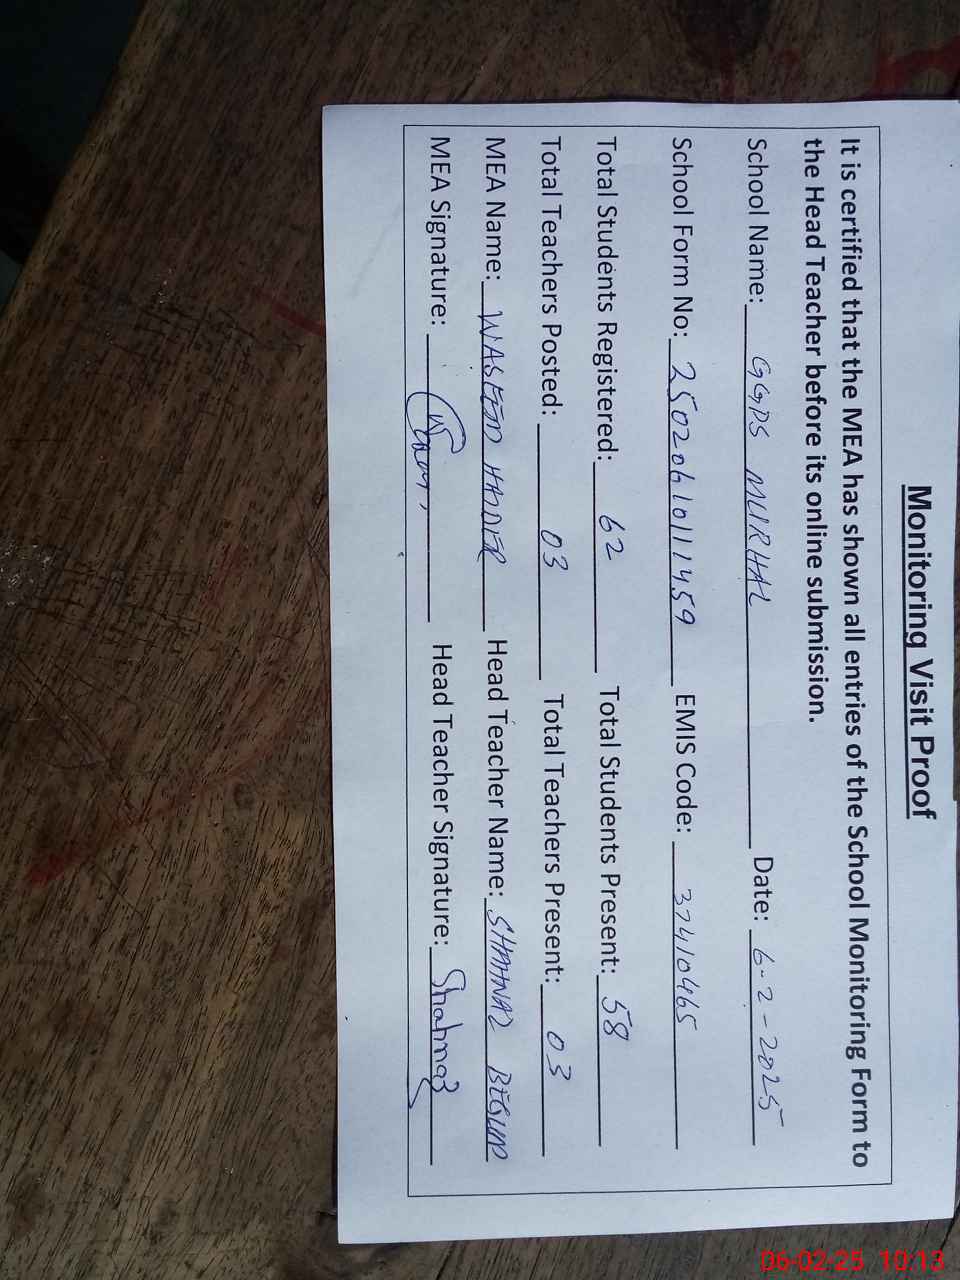 Monitoring Visit Proof
It is certified that the MEA has shown all entries of the School Monitoring Form to
the Head Teacher before its online submission.
School Name: GGPS MURHAL Date: 6-2-2025
School Form No: 2502061011459 EMIS Code: 37410465
Total Students Registered: 62 Total Students Present: 58
Total Teachers Posted: 03 Total Teachers Present: 03
MEA Name: WASEEM HAIDER Head Teacher Name: SHAHNAZ BEGUM
MEA Signature: Head Teacher Signature: Shahnaz
06-02-25 10:13